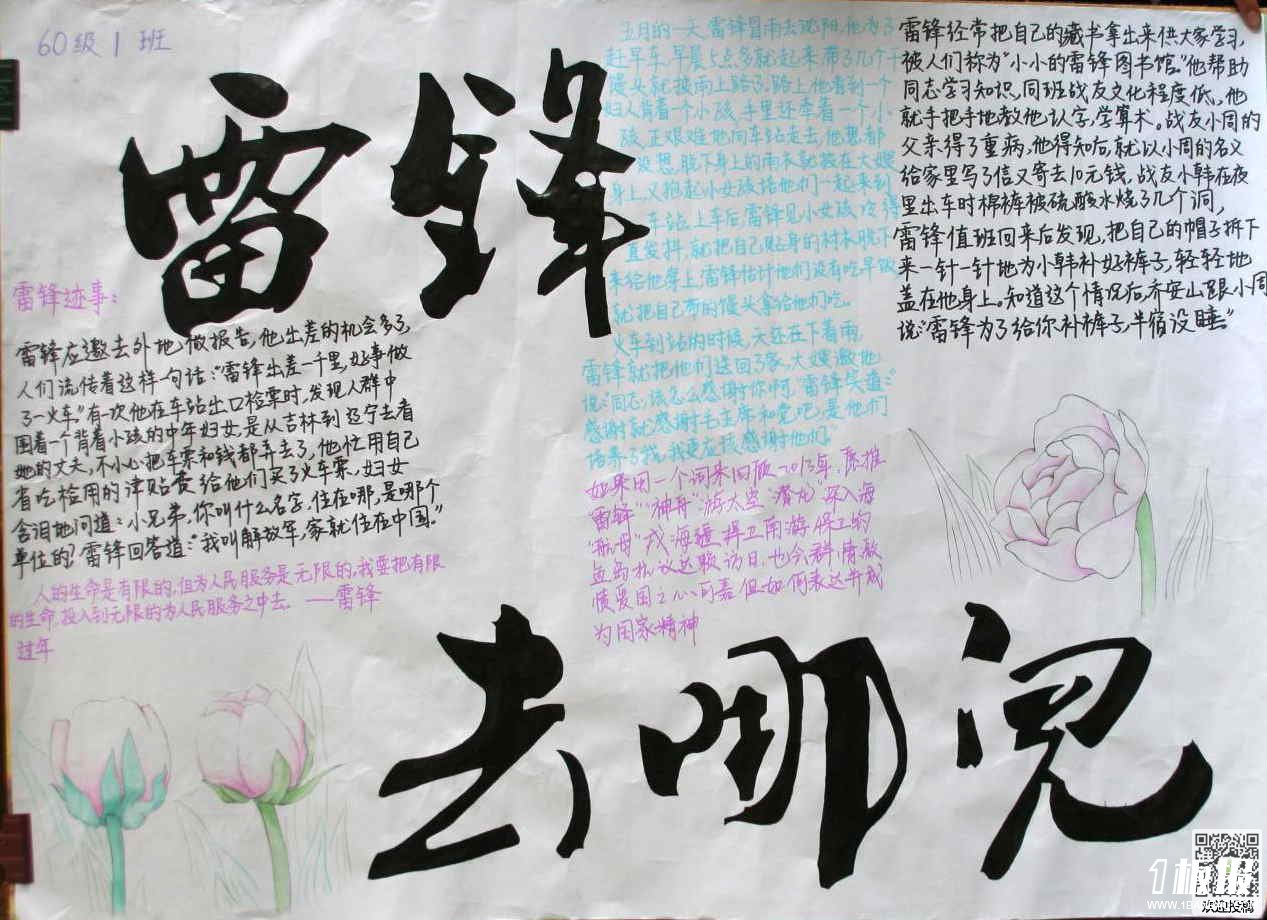 60级1班
雷锋
雷锋迹事:
雷锋应邀去外地做报告,他出差的机会多了,
人们流传着这样一句话:“雷锋出差一千里,好事做
了一火车。”有一次他在车站出口检票时,发现人群中
围着一个背着小孩的中年妇女,是从吉林到辽宁去看
她的丈夫,不小心把车票和钱都弄丢了,他忙用自己
省吃检用的津贴费给他们买了火车票,妇女
含泪地问道:小兄弟,你叫什么名字,住在哪,是哪个
单位的?雷锋回答道:“我叫解放军,家就住在中国。”
人的生命是有限的,但为人民服务是无限的,我要把有限
的生命,投入到无限的为人民服务之中去。——雷锋
过年
五月的一天,雷锋冒雨去沈阳,他为了
赶早车,早晨5点多就起来,带了几个干
馒头就披雨上路了,路上,他看到一个
妇人背着一个小孩,手里还牵着一个小
孩,正艰难地向车站走去,他想都
没想,脱下身上的雨衣就披在大嫂
身上,又抱起小女孩陪他们一起来到
车站,上车后,雷锋见小女孩冷得
直发抖,就把自己贴身的衬衣脱下
来给他穿上,雷锋估计他们没有吃早饭
就把自己带的馒头拿给他们吃。
火车到站的时候,天还在下着雨,
雷锋就把他们送回了家,大嫂激地
说:“同志,该怎么感谢你啊,雷锋笑道:“
感谢就感谢毛主席和党吧,是他们
培养了我,我更应该感谢他们。”
如果用一个词来回顾2013年,
“雷锋”“神舟”游太空“潜龙”探入海
“航母”戍海疆捍卫南游
访日,也令群情激
愤爱国之心可嘉但如何表达并成
为国家精神
雷锋经常把自己的藏书拿出来供大家学习,
被人们称为“小小的雷锋图书馆。”他帮助
同志学习知识,同班战友文化程度低,他
就手把手地教他认字,学算术。战友小周的
父亲得了重病,他得知后,就以小周的名义
给家里写了信又寄去10元钱,战友小韩在夜
里出车时棉裤被硫酸水烧了几个洞,
雷锋值班回来后发现,把自己的帽子拆下
来一针一针地为小韩补好裤子,轻轻地
盖在他身上。知道这个情况后,乔安山跟小周
说:“雷锋为了给你补裤子,半宿没睡。”
去哪儿
1板报